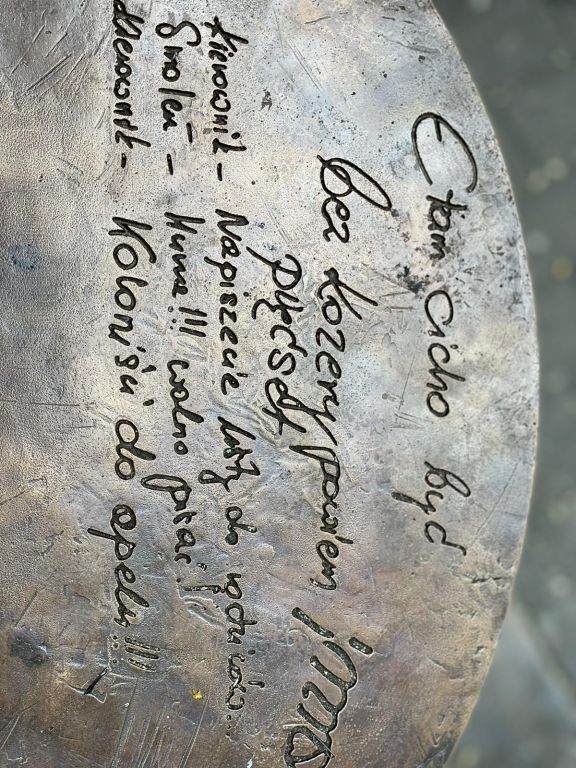 E tam cicho być
Bez kozery powiem
pięćset
Kierownik – Napiszecie listy do rodziców...
Smoleń – Hurra!!! wolno pisać!
Kierownik – Koloniści do apelu!!!